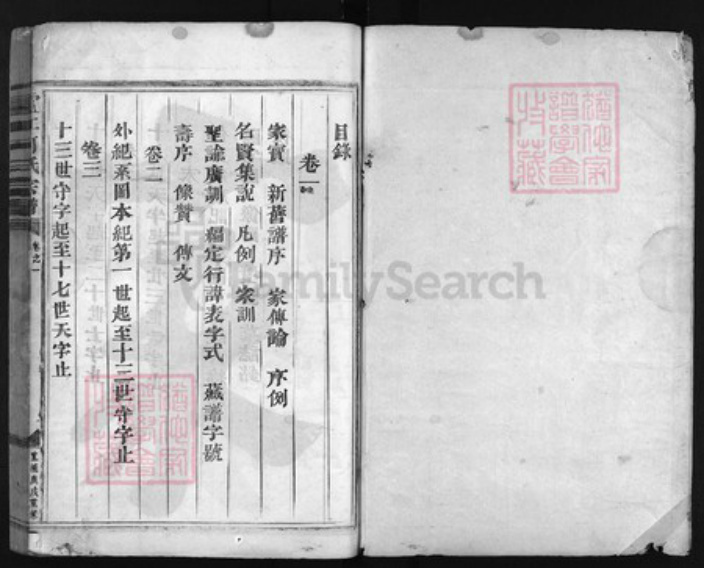 目錄
卷一
家寶 新舊譜序 家傳論 序例
名賢集說 凡例 家訓
聖諭廣訓 編定行諱表字式 藏譜字號
壽序 像贊 傳文
卷二
外紀系圖本紀第一世起至十三世守字止
卷三
十三世守字起至十七世天字止
何氏宗譜 卷之一
FamilySearch